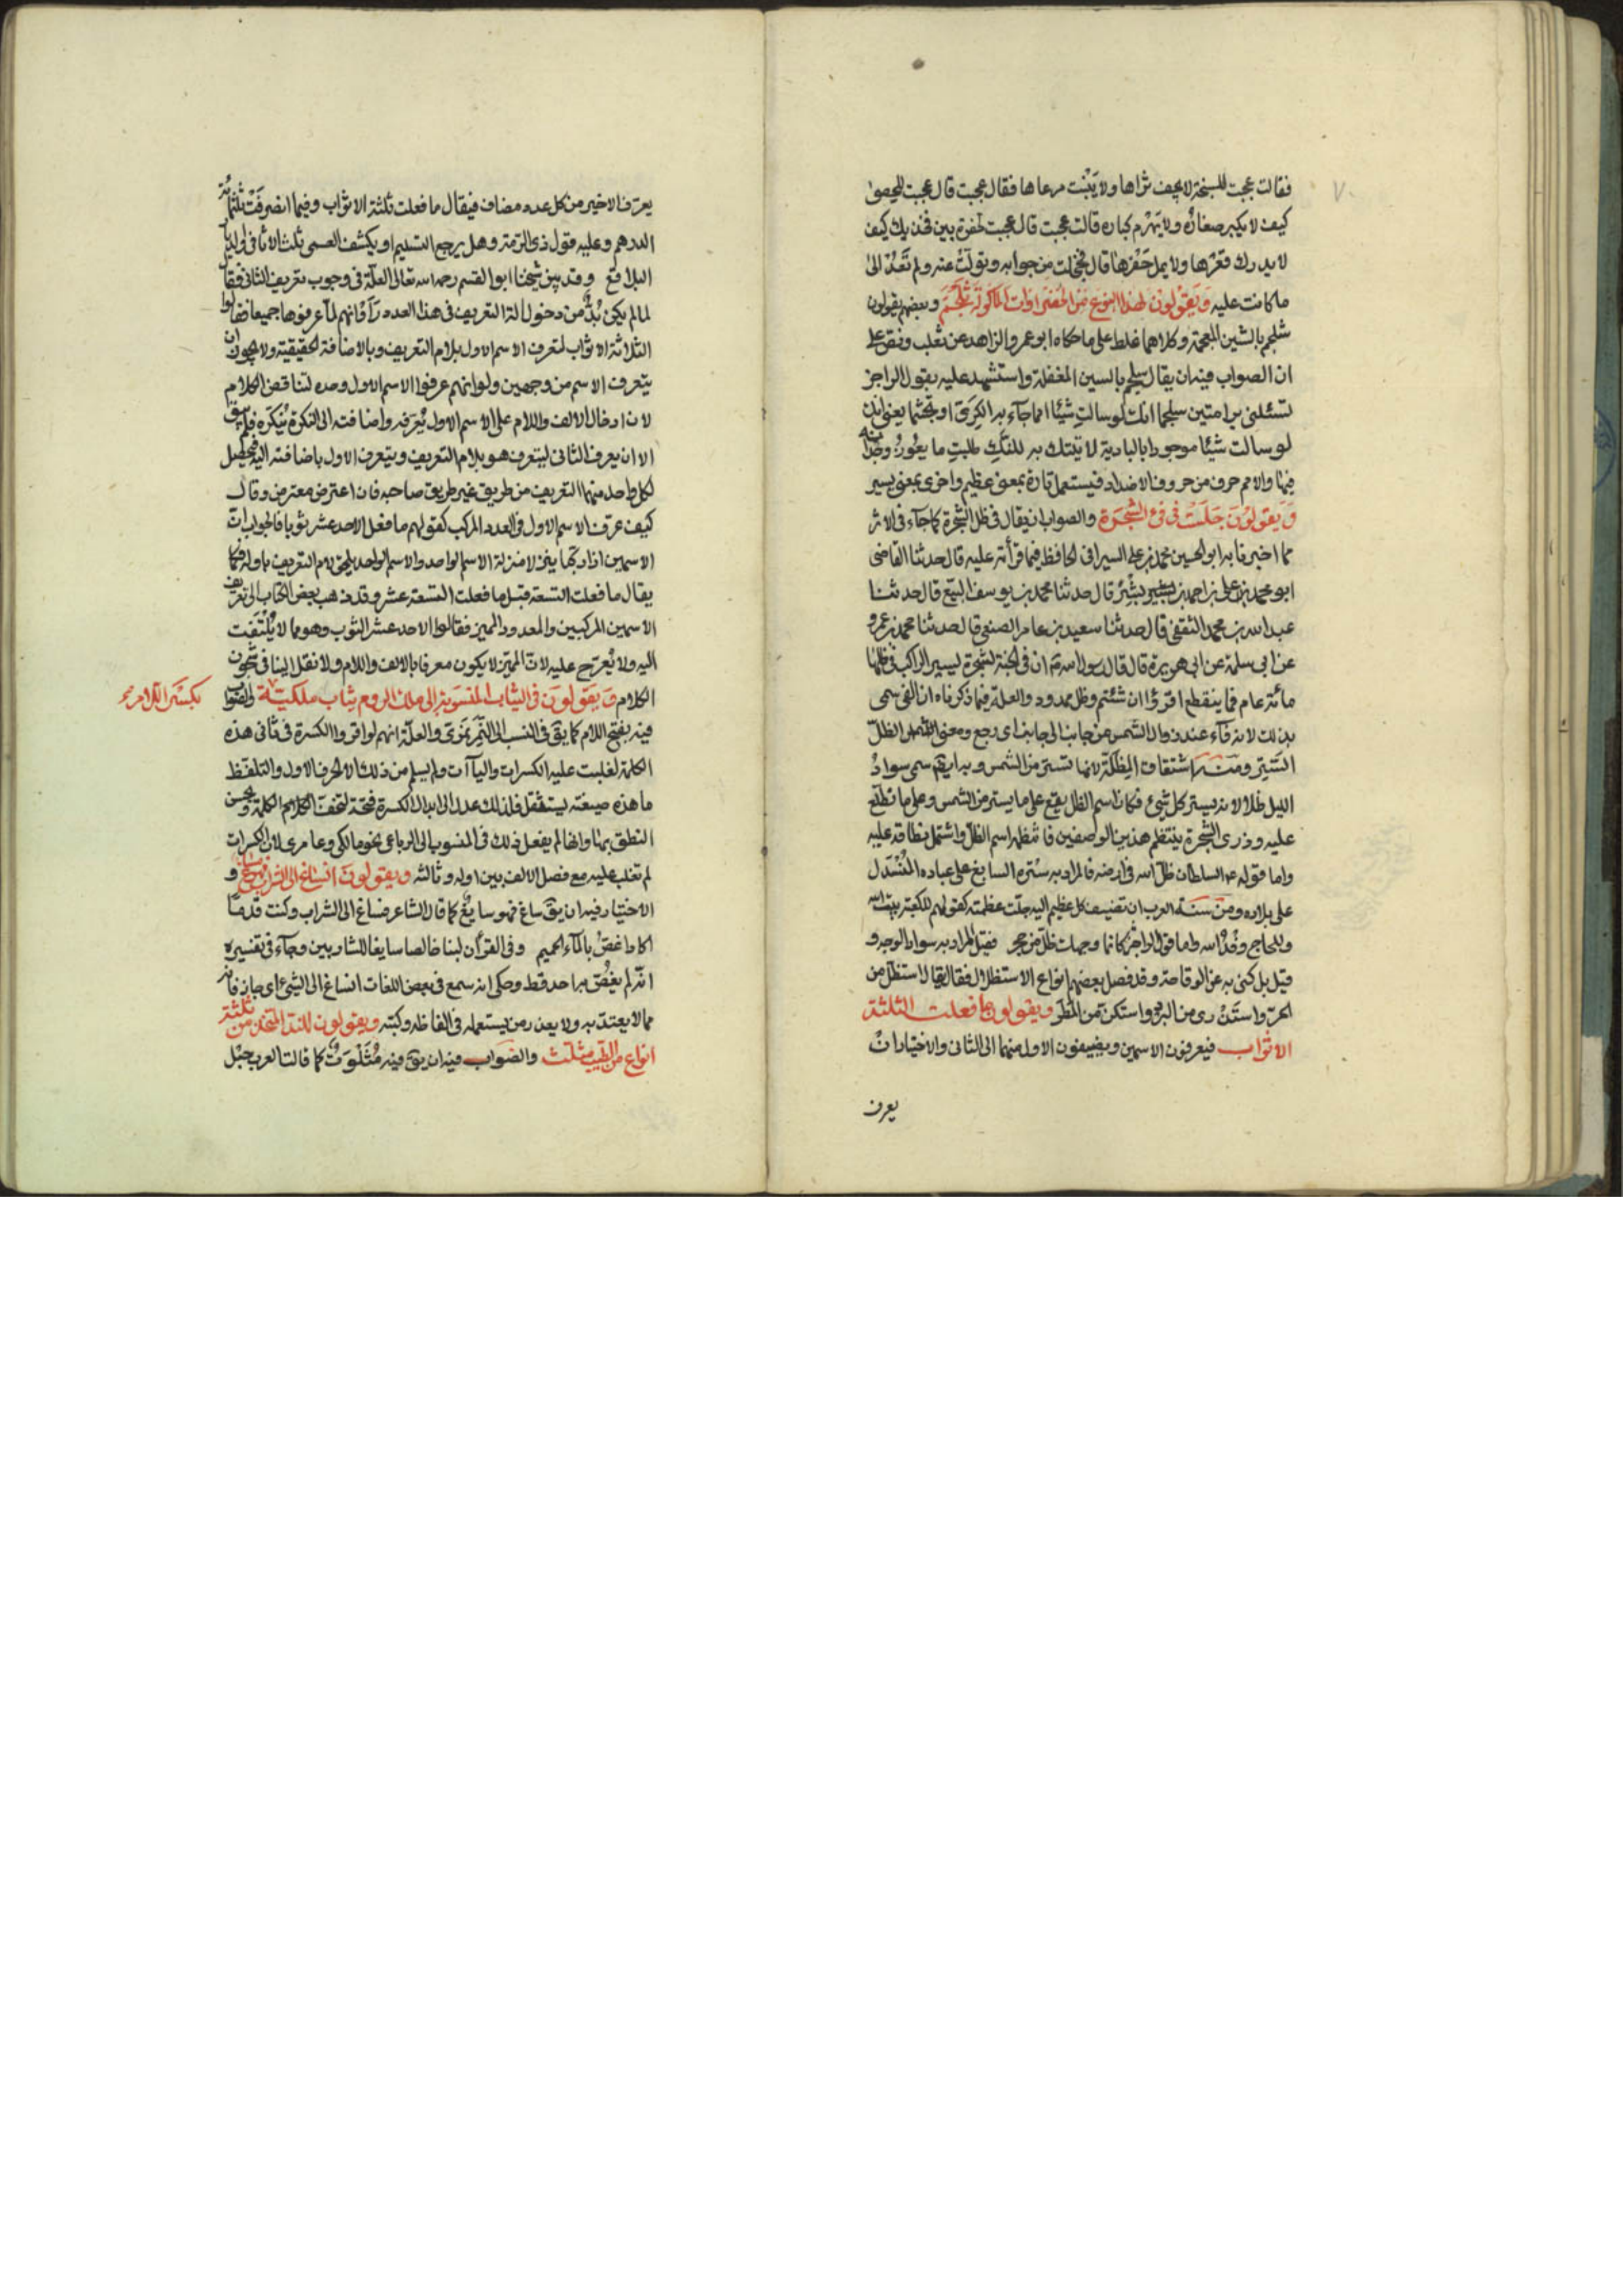 فقالت عجبت للسبخة لا يجف ثراها ولا ينبت مرعاها فقال عجبت قال عجبت للحصى
كيف لا يكبر صغاره ولا يهرم كباره قالت عجبت قال عجبت لحفرة بين فخذيك كيف
لا يدرك قعرها ولا يمل حفرها قال فخجلت من جوابه وتولت عنه ولم تعد الى
ما كانت عليه وَيَقولون لهذا النوع من الخضراوات المأكولة ثلجم وبعضهم يقولون
شلجم بالشين المعجمة وكلاهما غلط على ما حكاه ابو عمرو الزاهد عن ثعلب ونص على
ان الصواب فيه ان يقال سلجم بالسين المغفلة واستشهد عليه بقول الراجز
تسئلنى برامتين سلجما انك لو سالت شيئا امما جآء به الكرى او تجشما يعنى انك
لو سالت شيئا موجودا بالبادية لاتيتك به للنك طلبت ما يعوز وجدانه
فيها والامم حرف من حروف الاضداد فيستعمل تارة بمعنى عظيم واخرى بمعنى يسير
وَيقولون جَلَسْت فى فئ الشجرة والصواب ان يقال فى ظل الشجرة كما جآء فى الاثر
مما اخبرنا به ابو الحسين محمد بن على السيرافى الحافظ فيما قرأته عليه قال حدثنا القاضى
ابو محمد بن على بن احمد بن بشر قال حدثنا محمد بن يوسف البيع قال حدثنا
عبد الله بن محمد الثقفى قال حدثنا سعيد بن عامر الضبعى قال حدثنا محمد بن عمرو
عن ابى سلمة عن ابى هريرة قال قال رسول الله صم ان فى الجنة لشجرة ليسير الراكب فى ظلها
مائة عام فما ينقطع اقرؤا ان شئتم وظل ممدود والعلة فيما ذكرناه ان الفى سمى
بذلك لانه فآء عند زوال الشمس من جانب الى جانب اى رجع ومعنى الظل
الستر ومنه اشتقاق المِظلّة لانها تستر من الشمس وبه ايضم سمى سواد
الليل ظلا لانه يستر كل شئ فكان اسم الظل يقع على ما يستر من الشمس وعلى ما تطلع
عليه وذرى الشجرة ينتظم هذين الوصفين فانتظمه اسم الظل واشتمل نطاقه عليه
واما قوله عم السلطان ظل الله فى ارضه فالمراد به ستره السابغ على عباده المنسدل
على بلاده ومن سنة العرب ان تضيف كل عظيم اليه جلت عظمته كقولهم للكعبة بيت الله
وللحاج وفد الله واما قول الراجز كانما وجهك ظل من حجر فقيل المراد به سواد الوجه و
قيل بل كنى به عن الوقاحة وقد فصل بعضهم انواع الاستظلال فقال يقال استظل من
الحر واستذرى من البرد واستكن من المطر ويقولون ما فعلت الثلثة
الاثواب فيعرفون الاسمين ويضيفون الاول منهما الى الثانى والاختيار ان
يعرف
يعرف الاخير من كل عدد مضاف فيقال ما فعلت ثلثة الاثواب وفيما انصرفت ثلثمائة
الدرهم وعليه قول ذى الرمة وهل يرجع التسليم او يكشف العمى ثلث الاثافى والديار
البلاقع وقد بين شيخنا ابو القسم رحمه الله تعالى العلة فى وجوب تعريف الثانى فقال
لما لم يكن بد من دخول الة التعريف فى هذا العدد رأوا انهم لو عرفوهما جميعا فقالوا
الثلاثة الاثواب لتعرف الاسم الاول بلام التعريف وبالاضافة الحقيقية ولا يجوز ان
يتعرف الاسم من وجهين ولو انهم عرفوا الاسم الاول وحده لتناقض الكلام
لان ادخال الالف واللام على الاسم الاول يعرفه واضافته الى النكرة تنكره فلم يبق
الا ان يعرف الثانى ليتعرف هو بلام التعريف ويتعرف الاول باضافته اليه فيحصل
لكل واحد منهما التعريف من طريق غير طريق صاحبه فان اعترض معترض وقال
كيف عرف الاسم الاول فى العدد المركب كقولهم ما فعل الاحد عشر ثوبا فالجواب ان
الاسمين اذا ركبا ينزلا منزلة الاسم الواحد والاسم الواحد يلحق لام التعريف باوله فكما
يقال ما فعلت التسعة قيل ما فعلت التسعة عشر وقد ذهب بعض الكتاب الى تعريف
الاسمين المركبين والمعدود المميز فقالوا الاحد عشر الثوب وهو مما لا يلتفت
اليه ولا يعرج عليه لان المميز لا يكون معرفا بالالف واللام ولا نقل الينا فى شجون
الكلام وَيَقولون فى الثياب المنسوبة الى ملك الروم ثياب ملكية والصواب
بكسر اللام
فيه بفتح اللام كما يق فى النسب الى النمر نمرى والعلة انهم لو اقروا الكسرة فى ثانى هذه
الكلمة لغلبت عليه الكسرات واليآات ولم يسلم من ذلك الا الحرف الاول والتلفظ
ما هذه صيغته يستثقل فلذلك عدل الى ابدال الكسرة فتحة لتخف الكلمة ويحسن
النطق بها وانما لم يفعل ذلك فى المنسوب الى الرباعى نحو مالكى وعامرى لان الكسرات
لم تغلب عليه مع فصل الالف بين اوله وثالثه ويقولون انساغ الى الشراب فهو منساغ و
الاختيار فيه ان يق ساغ فهو سايغ كما قال الشاعر فساغ الى الشراب وكنت قدما
اكاد اغص بالمآء الحميم وفى القرأن لبنا خالصا سايغا للشاربين وجآء فى تفسيره
انه لم يغص به احد قط وحكى انه سمع فى بعض اللغات انساغ الى الشئ اى جاز فانه
مما لا يعتد به ولا يعذر من يستعمله فى الفاظه وكتبه ويقولون للند المتخذ من ثلثة
انواع من الطيب مثلث والصواب فيه ان يق فيه مثلوث كما قالت العرب حبل